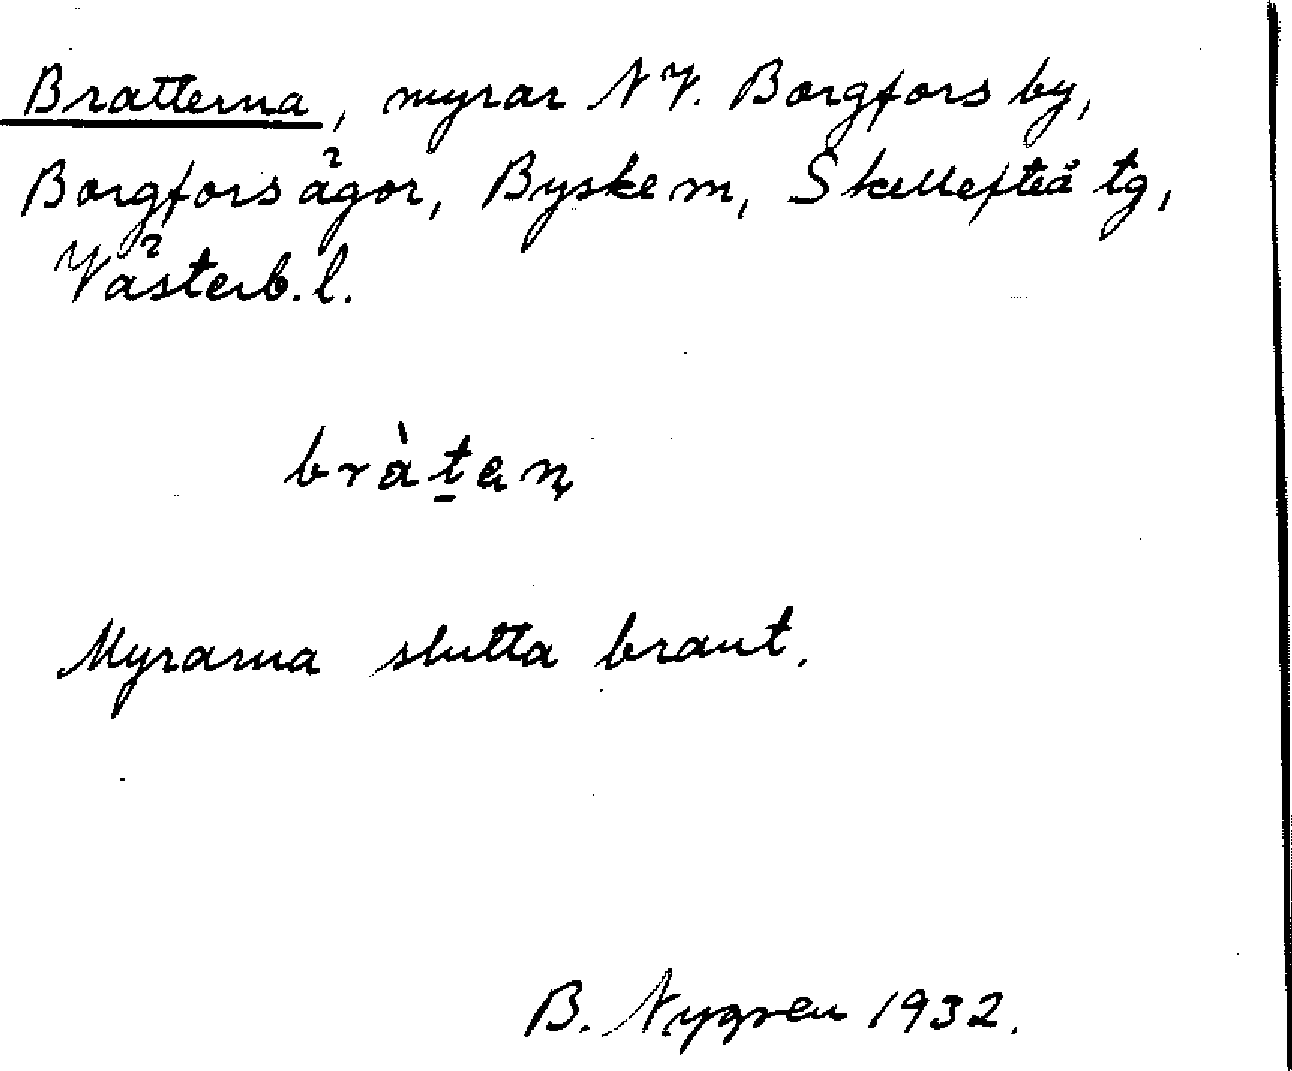 Bratterna, myrar NV. Borgfors by,
Borgfors ägor, Byske sn, Skellefteå tg,
Västerb. l.
bràt̠en̥
Myrarna slutta brant.
B. Nygren 1932.